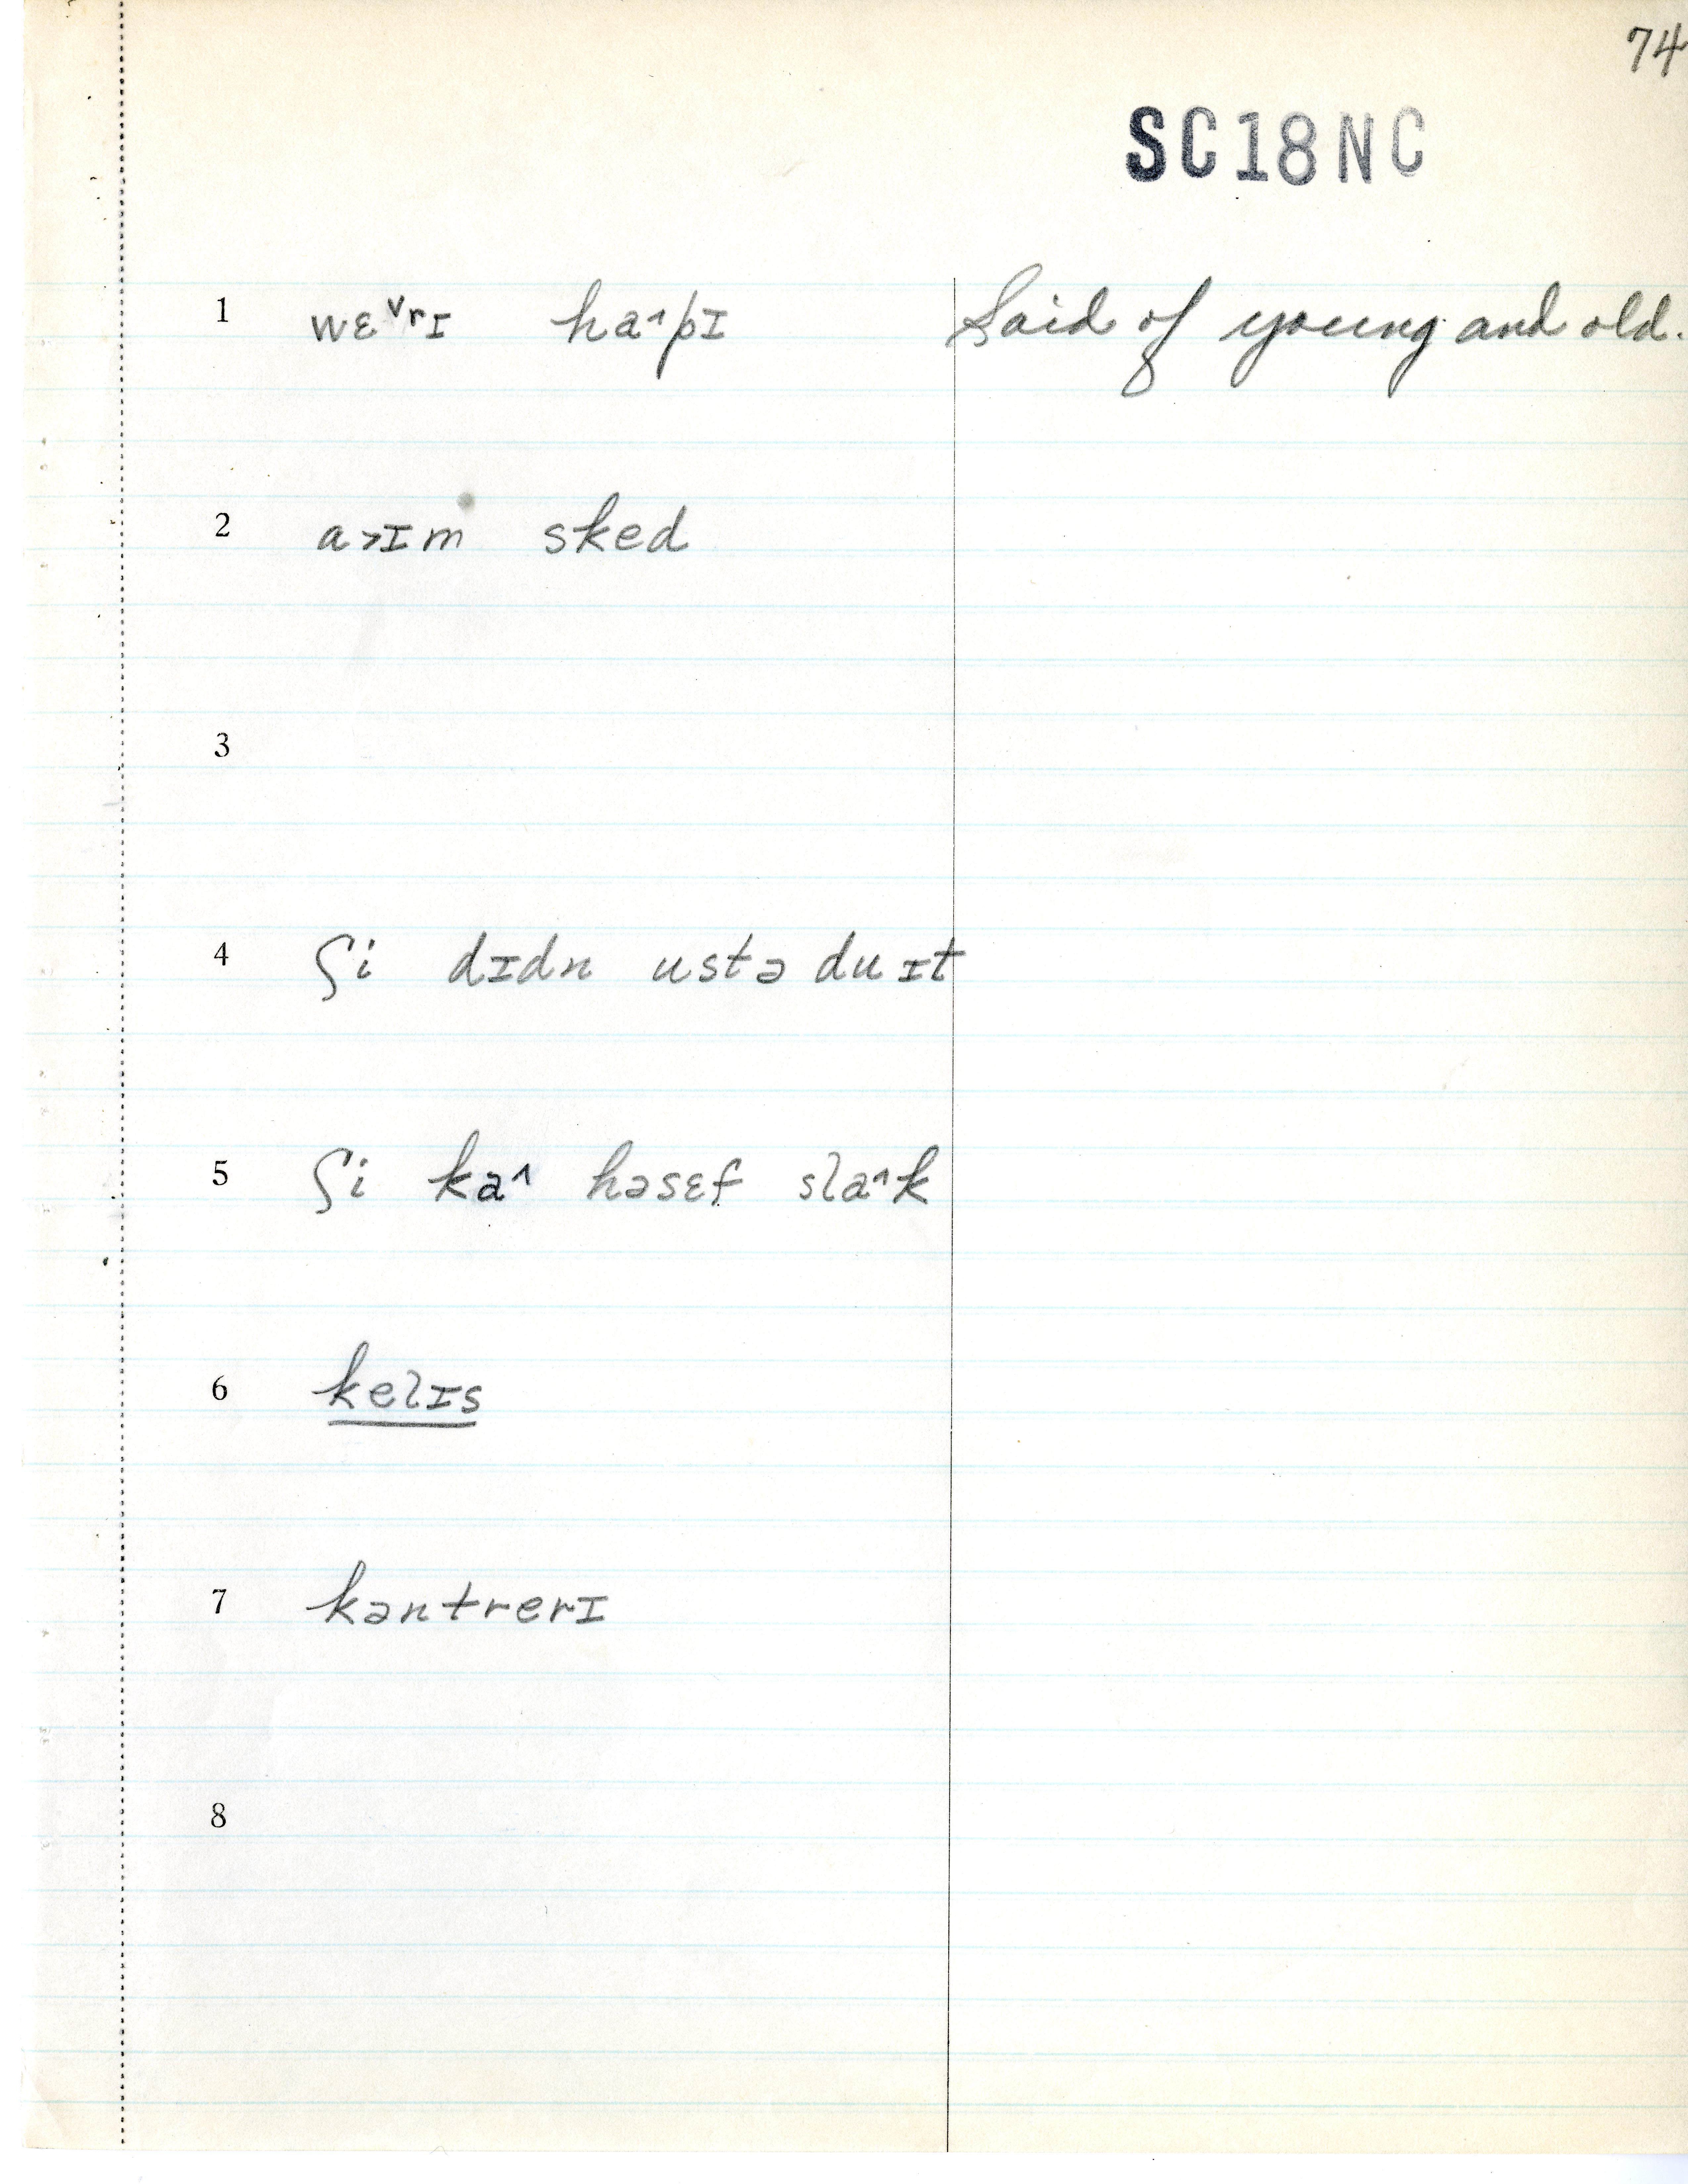 74
SC18NC
1 wɛ˅rɪ ha˄pɪ Said of young and old.
2 a˃ɪm sked
3
4 ʃi dɪdn ustə du ɪt
5 ʃi ka˄ həsɛf sla˄k
6 kelɪs
7 kəntrerɪ
8